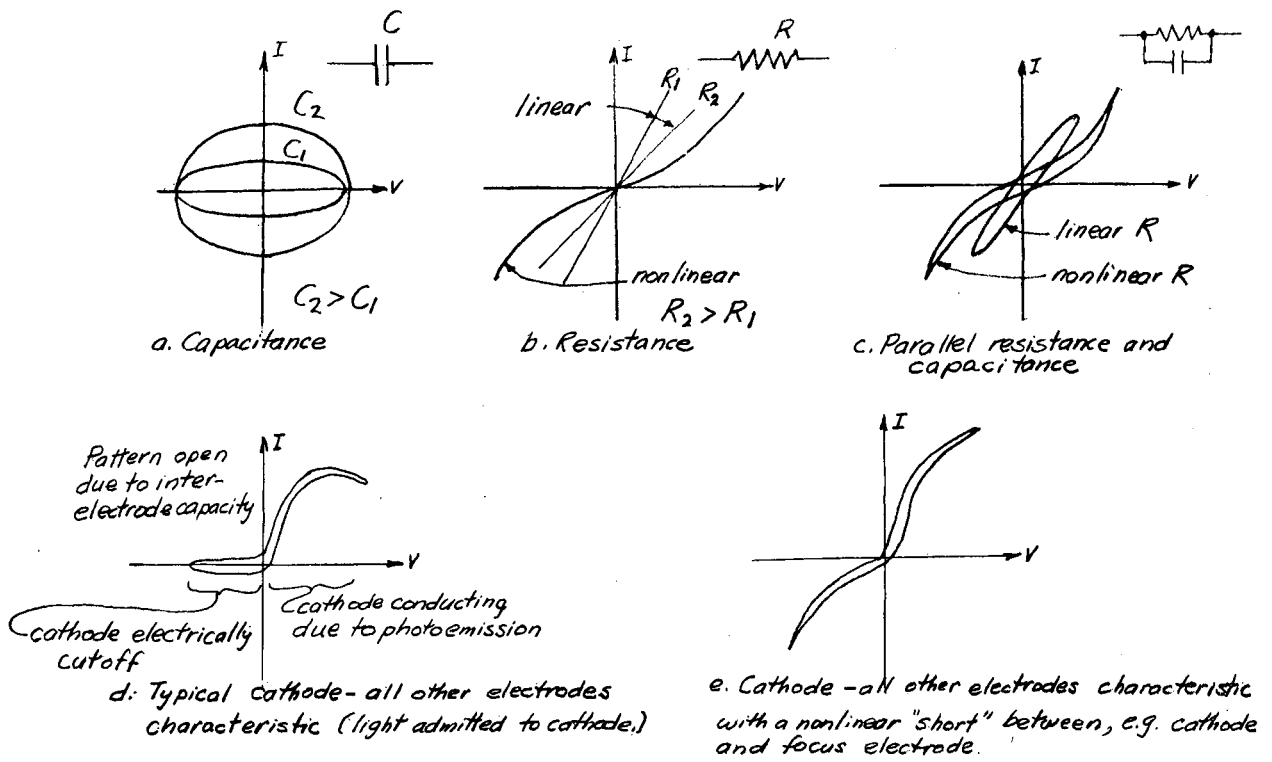 C
I
C₂
C₁
V
C₂ > C₁
a. Capacitance
R
I
R₁
R₂
linear
V
nonlinear
R₂ > R₁
b. Resistance
I
V
linear R
nonlinear R
c. Parallel resistance and
capacitance
I
Pattern open
due to inter-
electrode capacity
V
cathode conducting
due to photoemission
cathode electrically
cutoff
d. Typical cathode - all other electrodes
characteristic (light admitted to cathode.)
I
V
e. Cathode - all other electrodes characteristic
with a nonlinear "short" between, e.g. cathode
and focus electrode.